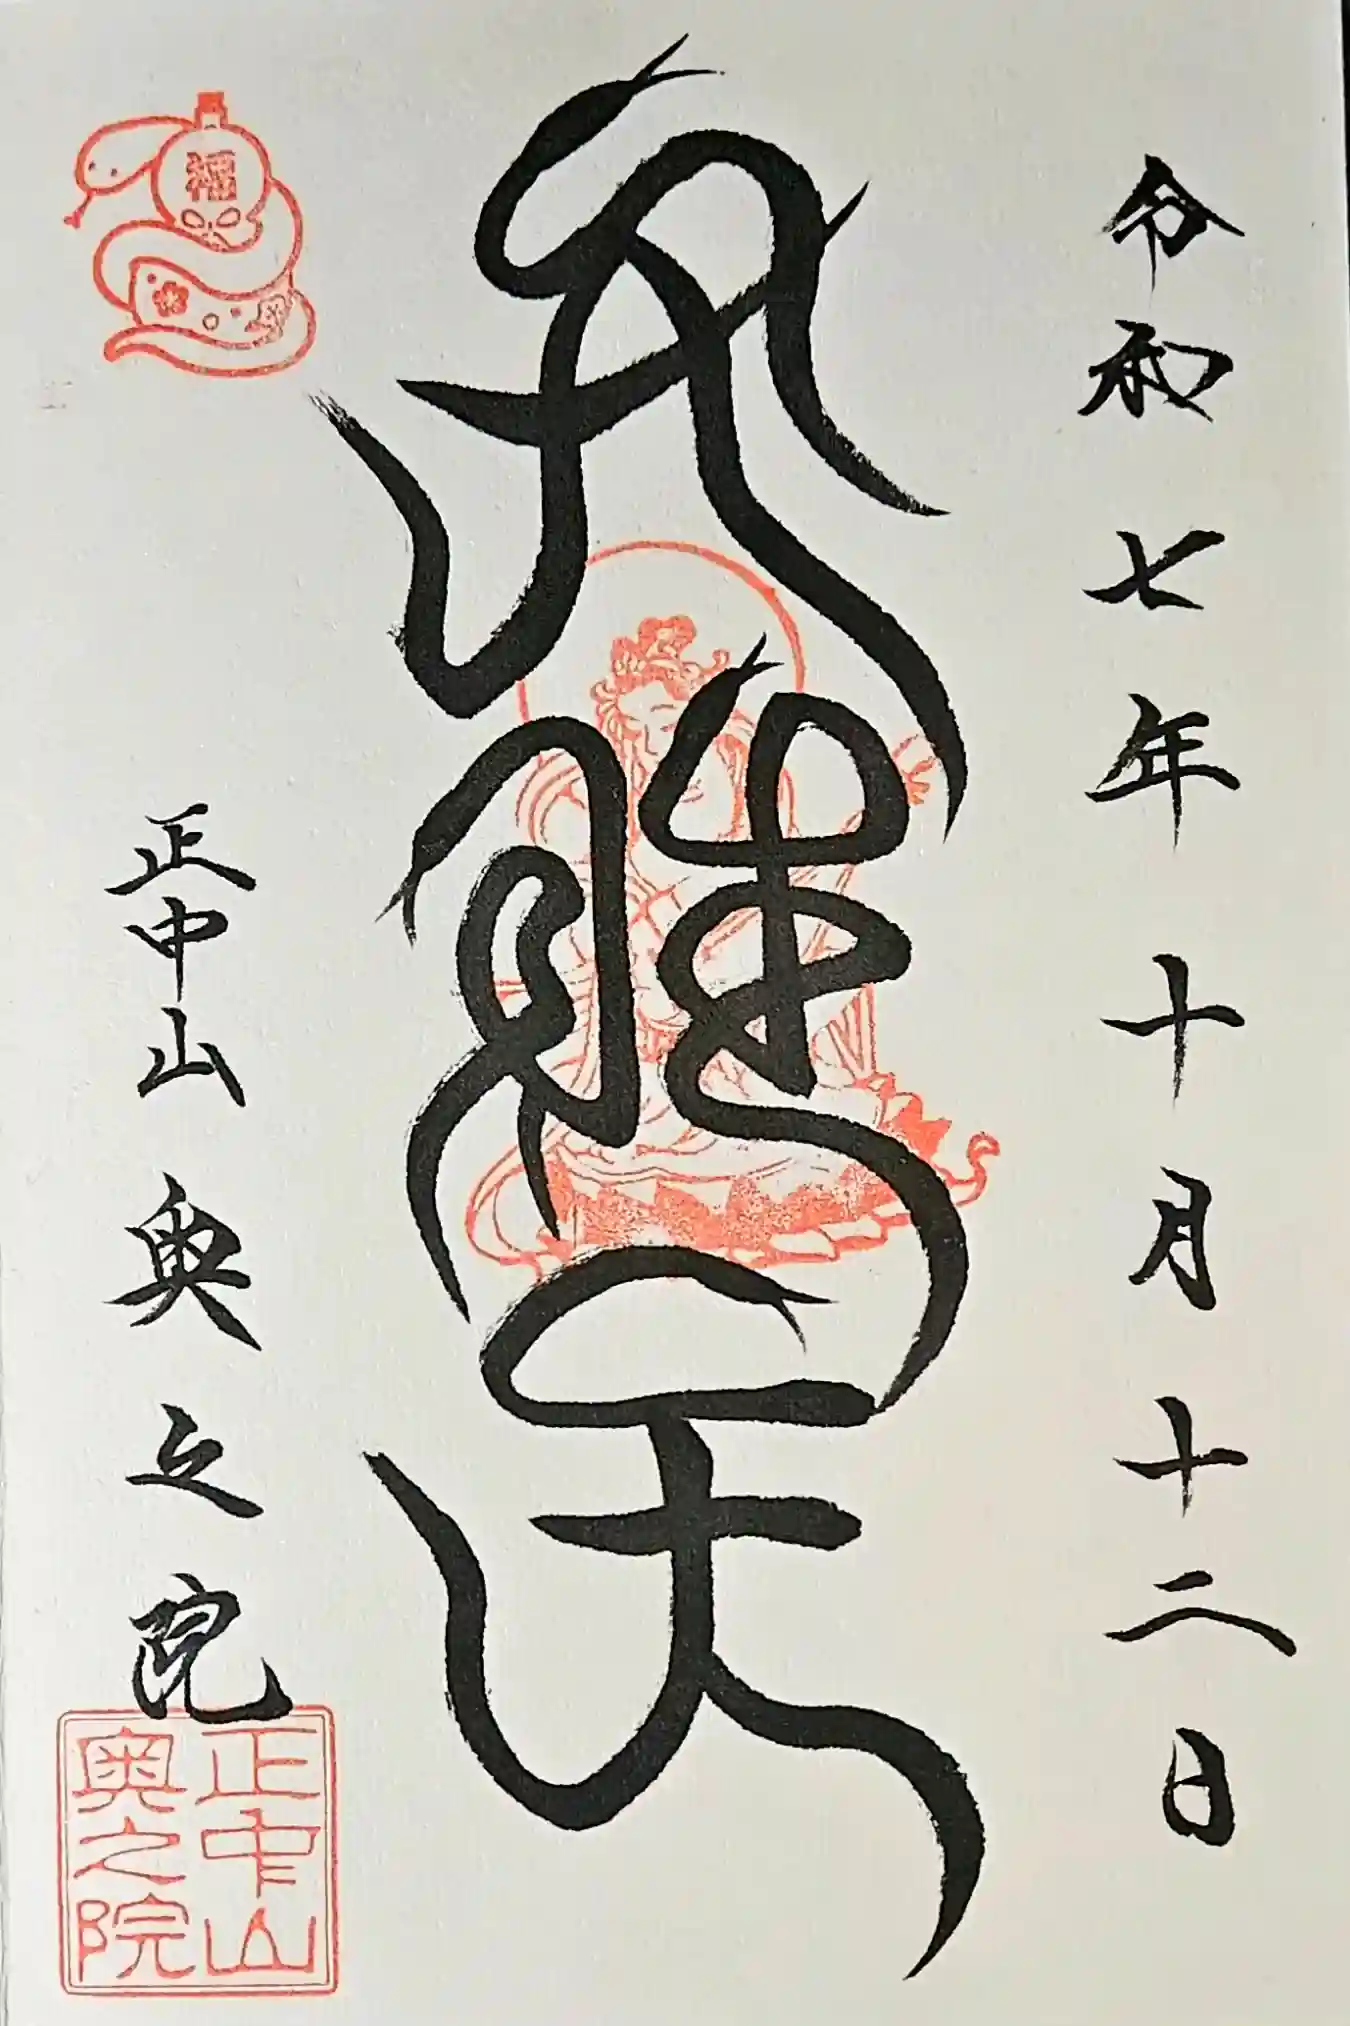 令和七年十月十二日
弁財天
福
正中山 奥之院
正中山
奥之院